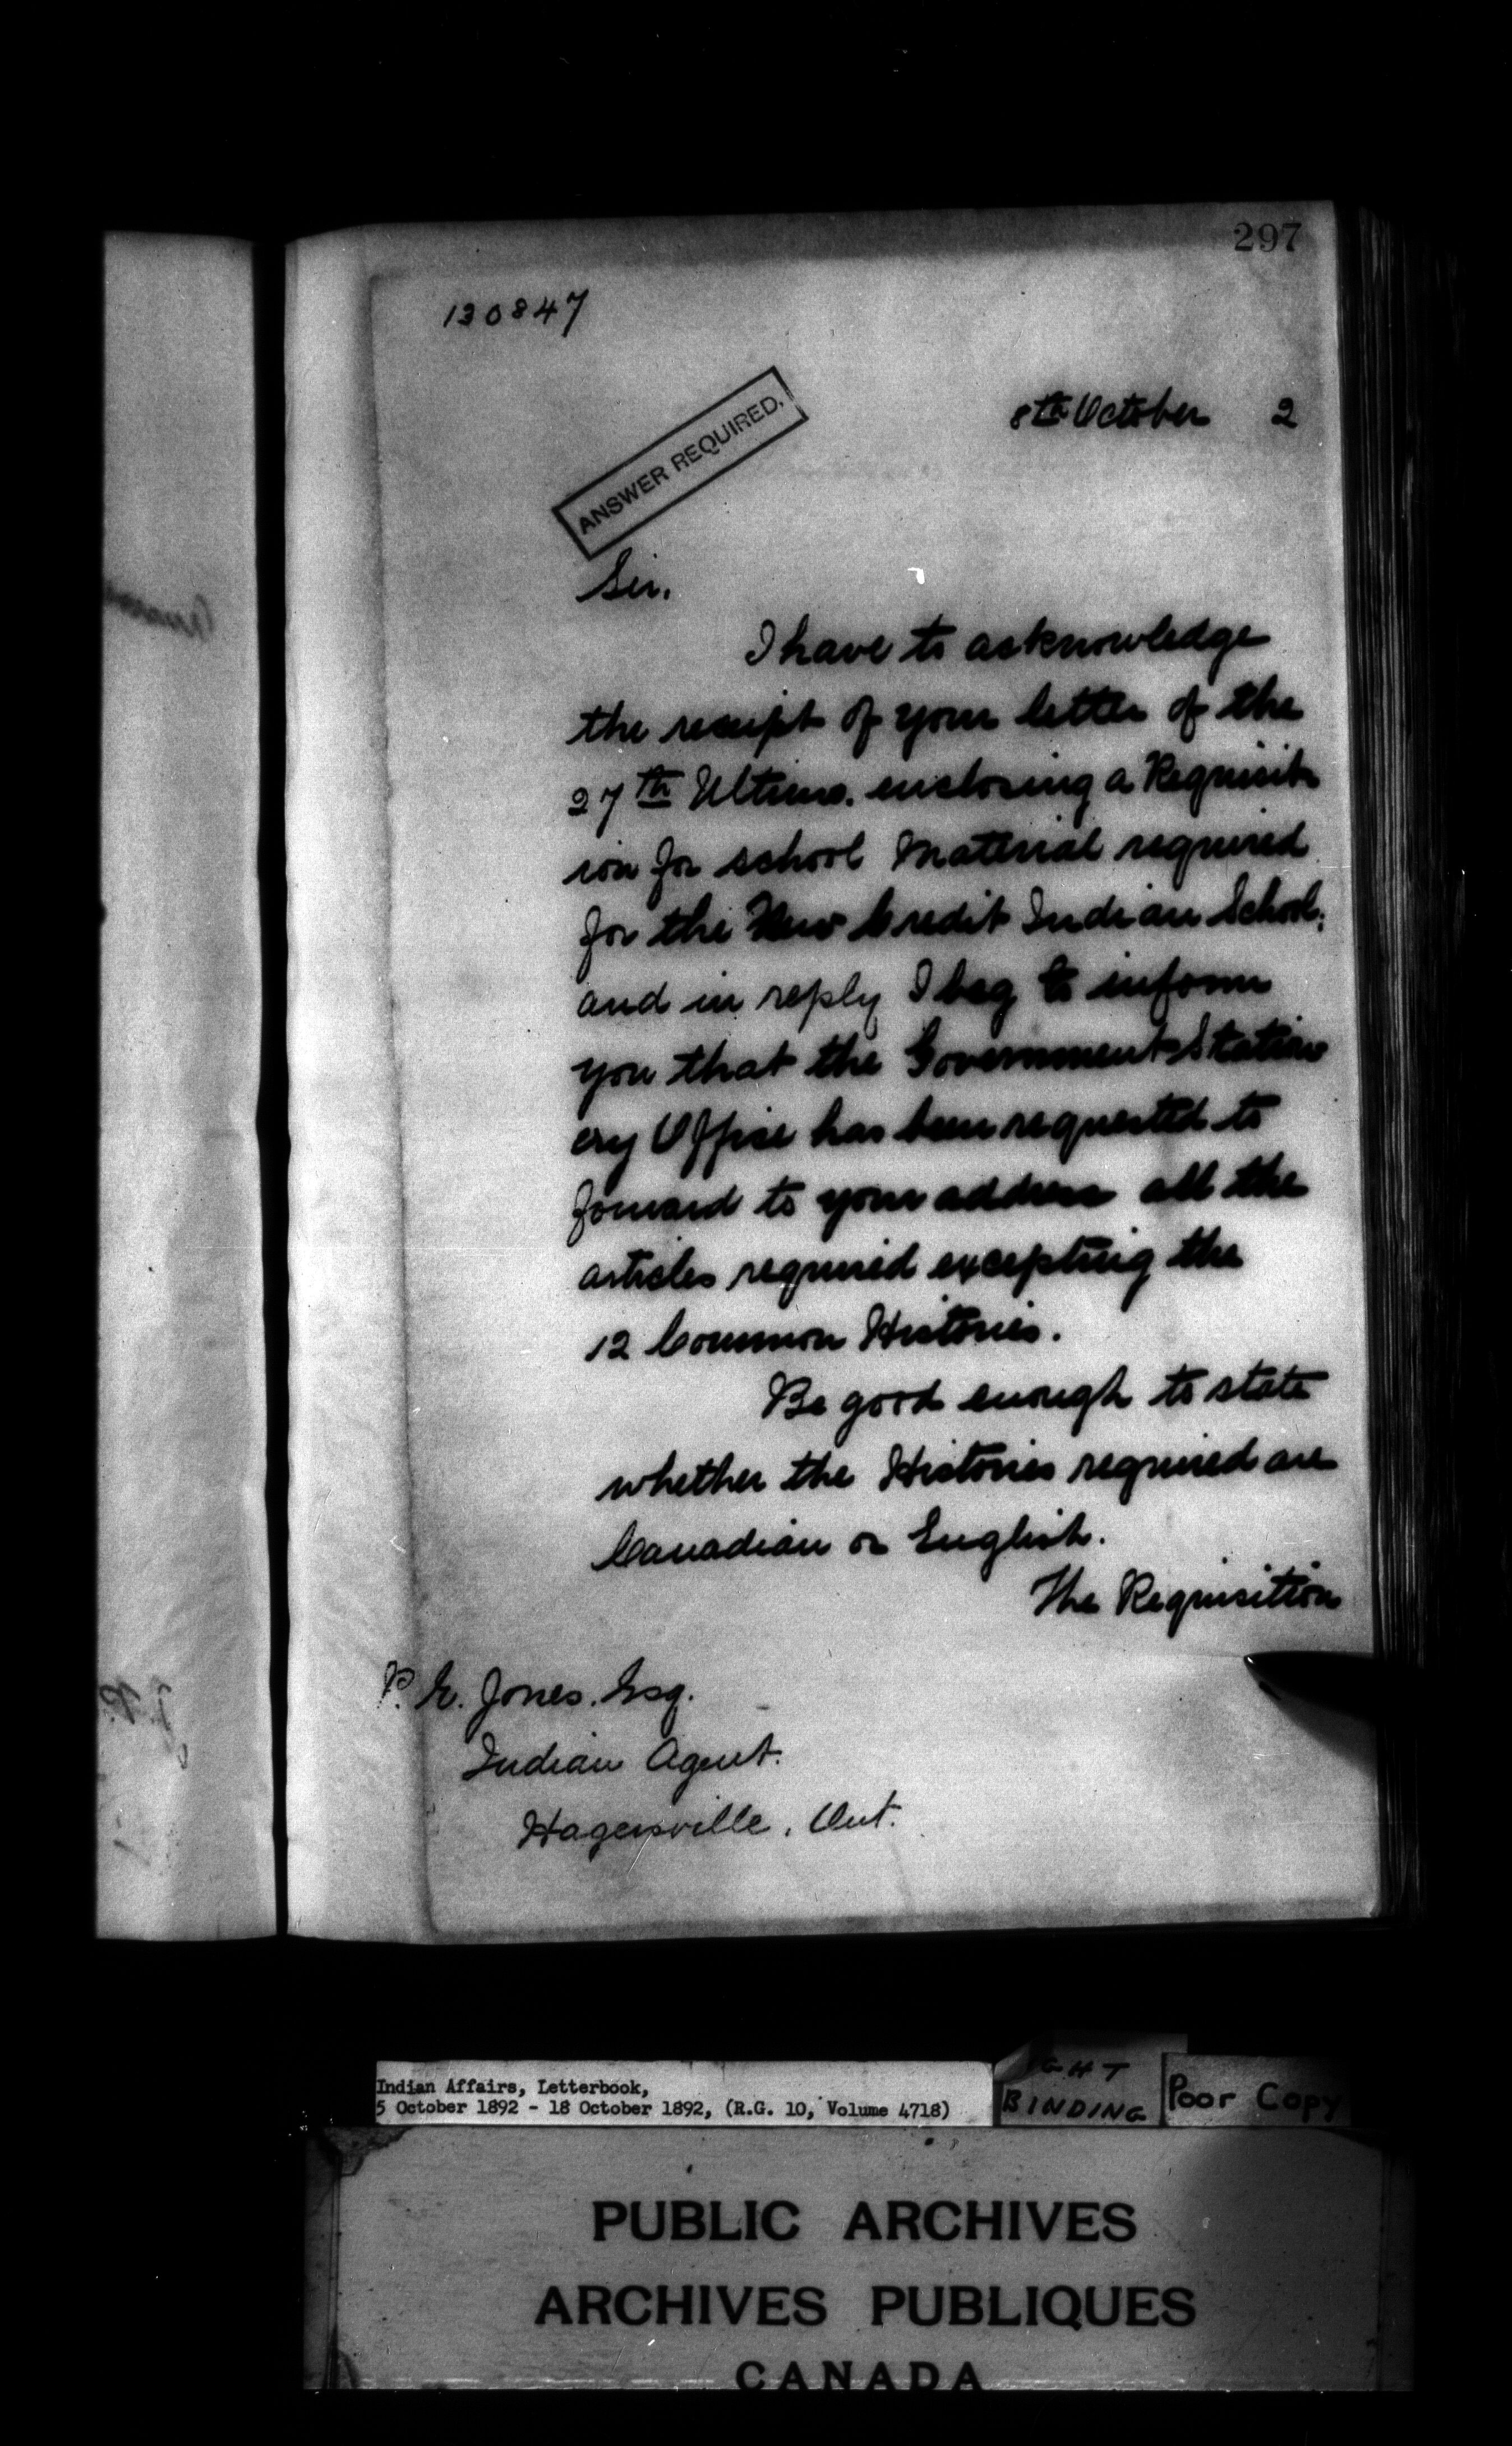 297
130847
8th October 2
ANSWER REQUIRED.
Sir.
I have to acknowledge
the receipt of your letter of the
27th Ultimo. enclosing a Requisit
ion for school Material required
for the New Credit Indian School;
and in reply I beg to inform
you that the Government Station
ery Office has been requested to
forward to your address all the
articles required excepting the
12 Common Histories.
Be good enough to state
whether the Histories required are
Canadian or English.
The Requisition
P. E. Jones. Esq.
Indian Agent.
Hagersville, Ont.
Indian Affairs, Letterbook,
5 October 1892 - 18 October 1892, (R.G. 10, Volume 4718)
GHT
BINDING
Poor Copy
PUBLIC ARCHIVES
ARCHIVES PUBLIQUES
CANADA